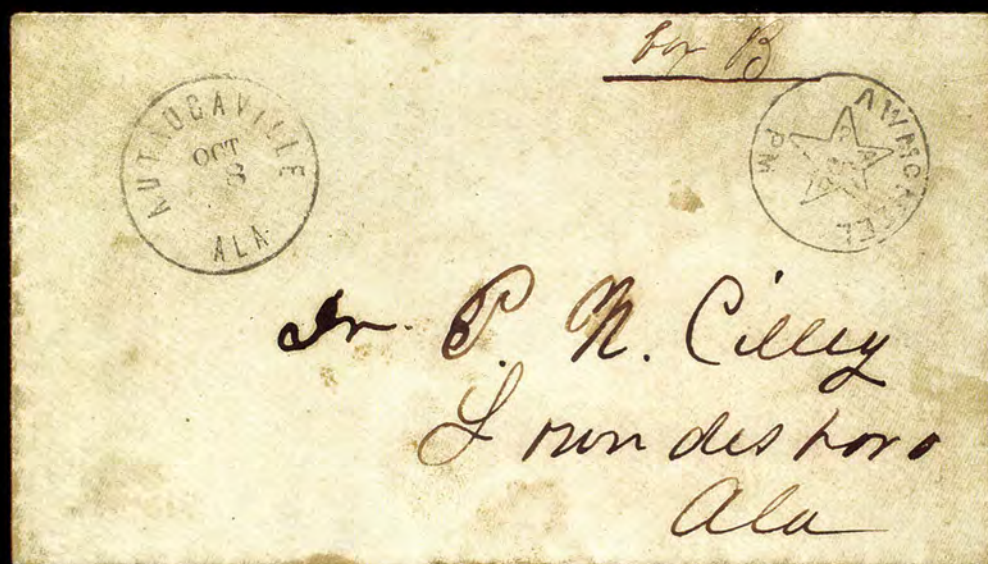 box B
AUTAUGAVILLE
OCT
8
ALA
AWMCNEEL
PM
Dr. P. N. Cilley
Lowndesboro
Ala